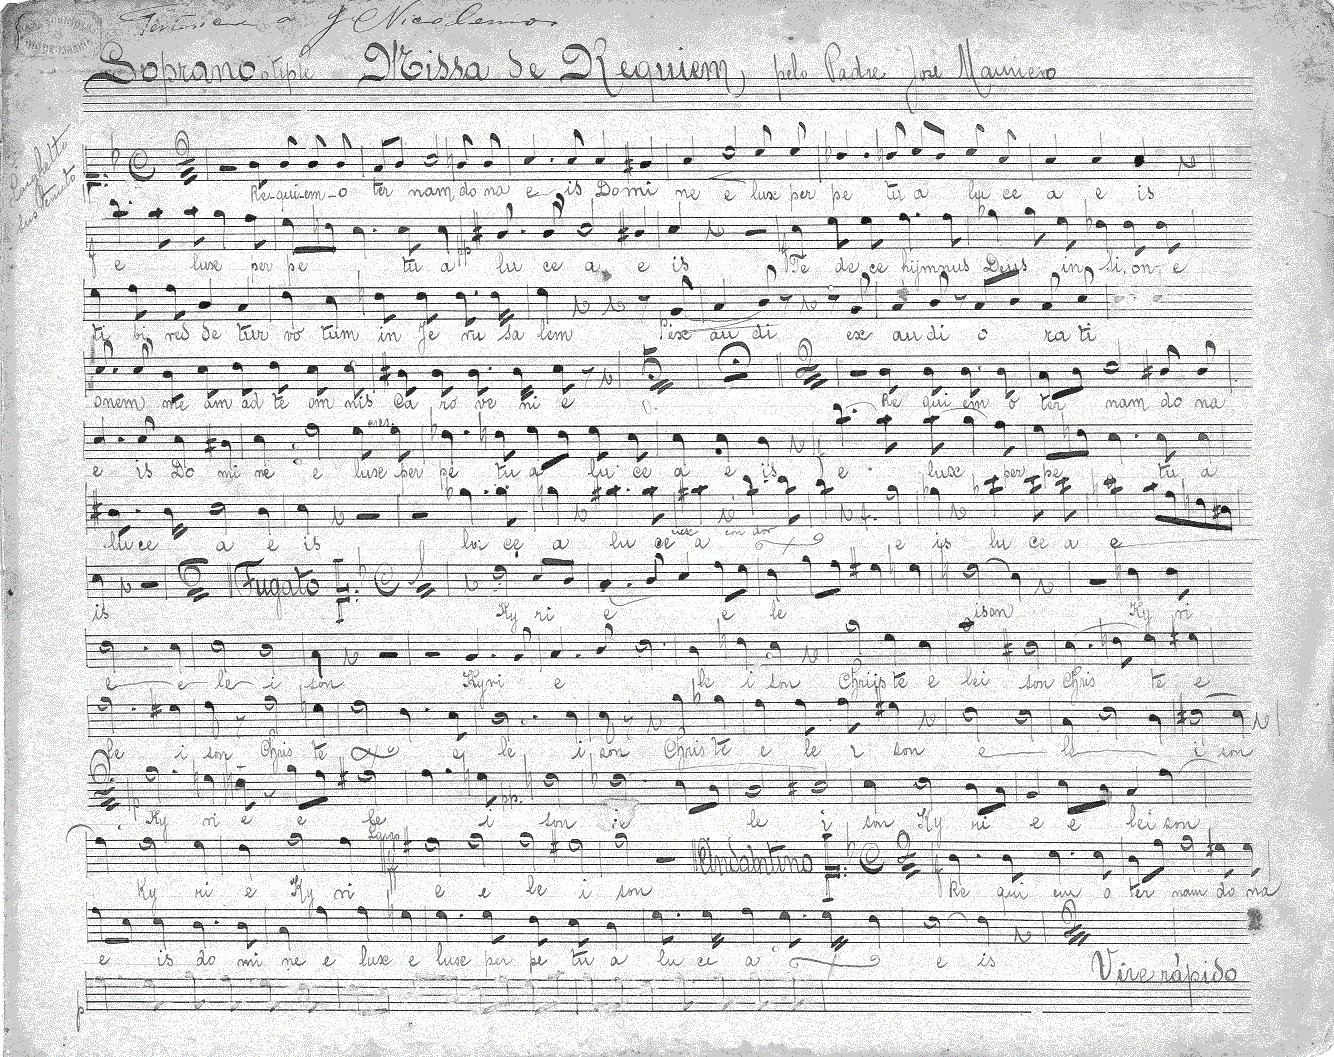 Pertence a J Nicolemos
Soprano otiple Missa de Requiem, pelo Padre José Maurico
Larghetto
Re-qui-em-o ter nam do na e is Domi ne e lux per pe tu a lu ce a e is
f e luxe per pe tu a lu ce a e is Te de ce hijmnus Deus in Si, on, e
ti bi red de tur vo tum in Je ru sa lem ex au di ex au di o ra ti
onem me am ad te om nis Ca ro ve ni e Re qui em o ter nam do na
e is Do mi ne e luxe per pe tu a lu ce a e is e luxe per pe tu a
lu ce a e is lu ce a lu ce a e is lu ce a e
is Fugato Ky ri e e le ison Ky ri
e e le i son Kyri e le i son Chrijs te e lei son Chris te e
le i son Chris te e le i son Chris te e le i son e le i son
Ky ri e e le i son le i son Ky ri e e lei son
Largo
Andantino
Ky ri e Ky ri e e le i son Re qui em o ter nam do na
e is do mi ne e luxe e luxe per pe tu a lu ce a e is
Vire rápido